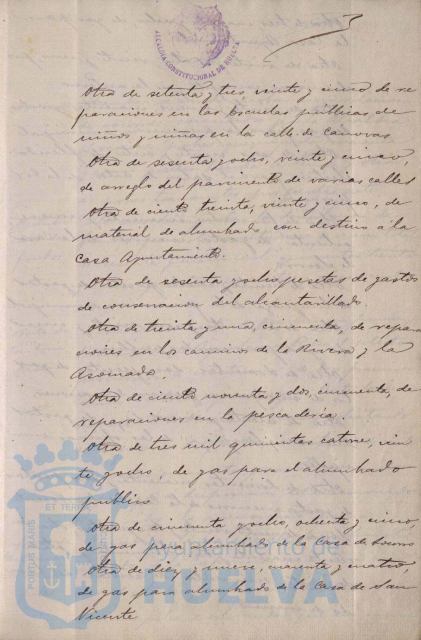 ALCALDIA CONSTITUCIONAL DE HUELVA
Otra de setenta y tres, veinte y cinco de re
paraciones en las Escuelas públicas de
niños y niñas en la calle de Canovas
Otra de sesenta y ocho, veinte y cinco,
de arreglo del pavimento de varias calles
Otra de ciento treinta, veinte y cinco, de
material de alumbrado con destino a la
Casa Ayuntamiento.
Otra de sesenta y ocho pesetas de gastos
de conservacion del alcantarillado
Otra de treinta y una, cincuenta, de repara
ciones en los caminos de la Rivera y la
Otra de ciento noventa y dos, cincuenta, de
reparaciones en la pescaderia.
Otra de tres mil quinientas catorce, vein
te y ocho, de gas para el alumbrado
publico
Otra de cincuenta y ocho, ochenta y cinco,
de gas para alumbrado de la Casa de Socorro
Otra de diez y nueve, cuarenta y cuatro,
de gas para alumbrado de la Casa de San
Vicente
PORTUS MARIS
ET TERRÆ
Ayuntamiento de
HUELVA